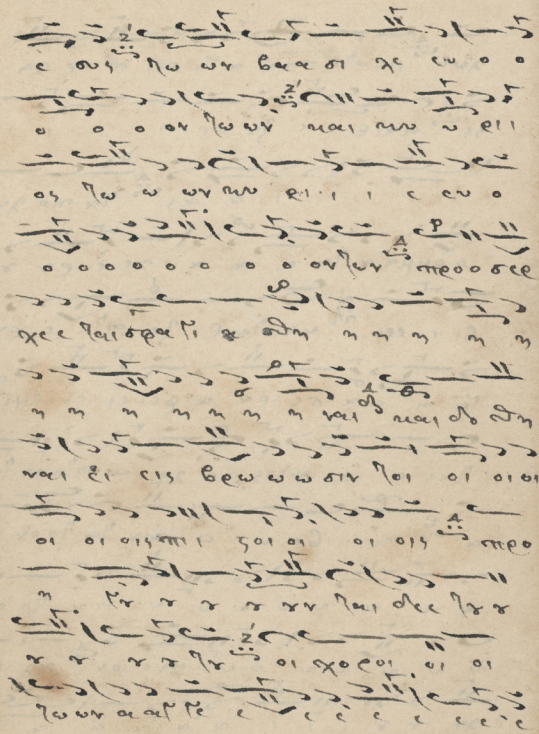 ε ους τω ων βαα σι λε ευ ο ο
ο ο ο ον τωων και κυ υ ρι ι
ος τω ω ων κυ ρι ι ι ε ευ ο
ο ο ο ο ο ο ο ο ον των προοσερ
χεε ται σφαγι α σθη η η η η η
η η η η η η η ναι και δο θη
ναι εἰ εις βρω ω ω σιν τοι οι οιοι
οι οι οιςπι ι στοι οι οι οις προ
η γȣ ȣ ȣ ȣ ȣ ȣν ται δεε τȣȣ
ȣ ȣ ȣ ȣ τȣ οι χοροι οι οι
τωων α αγ γε ε ε ε ε ε ε ε